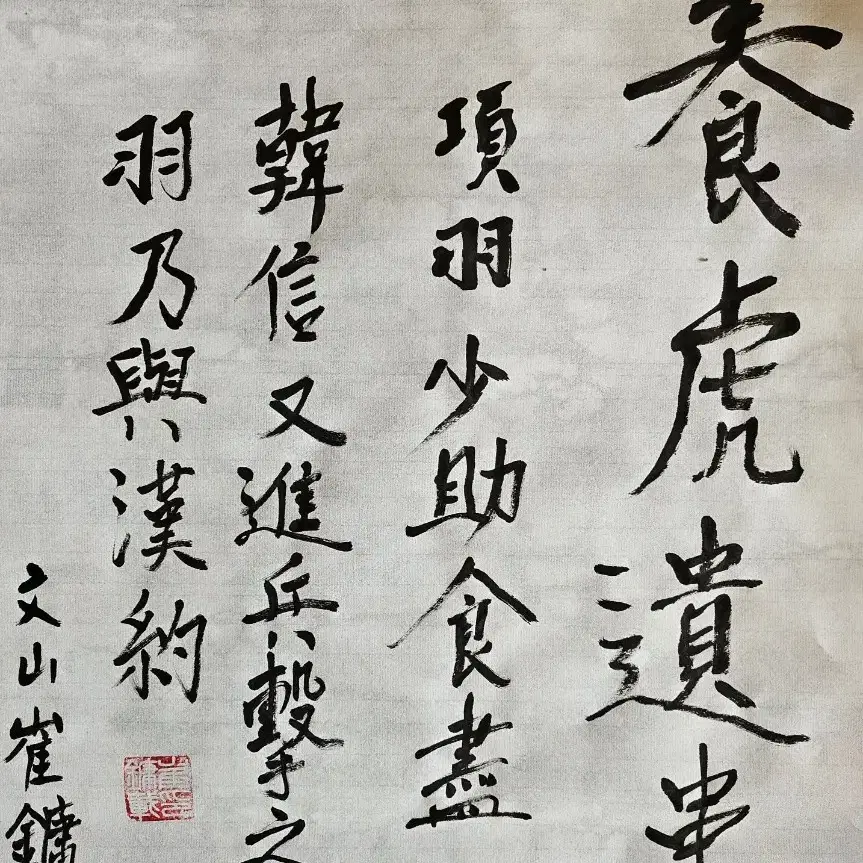 養虎遺患
項羽少助食盡
韓信又進兵擊之
羽乃與漢約
文山崔鏞